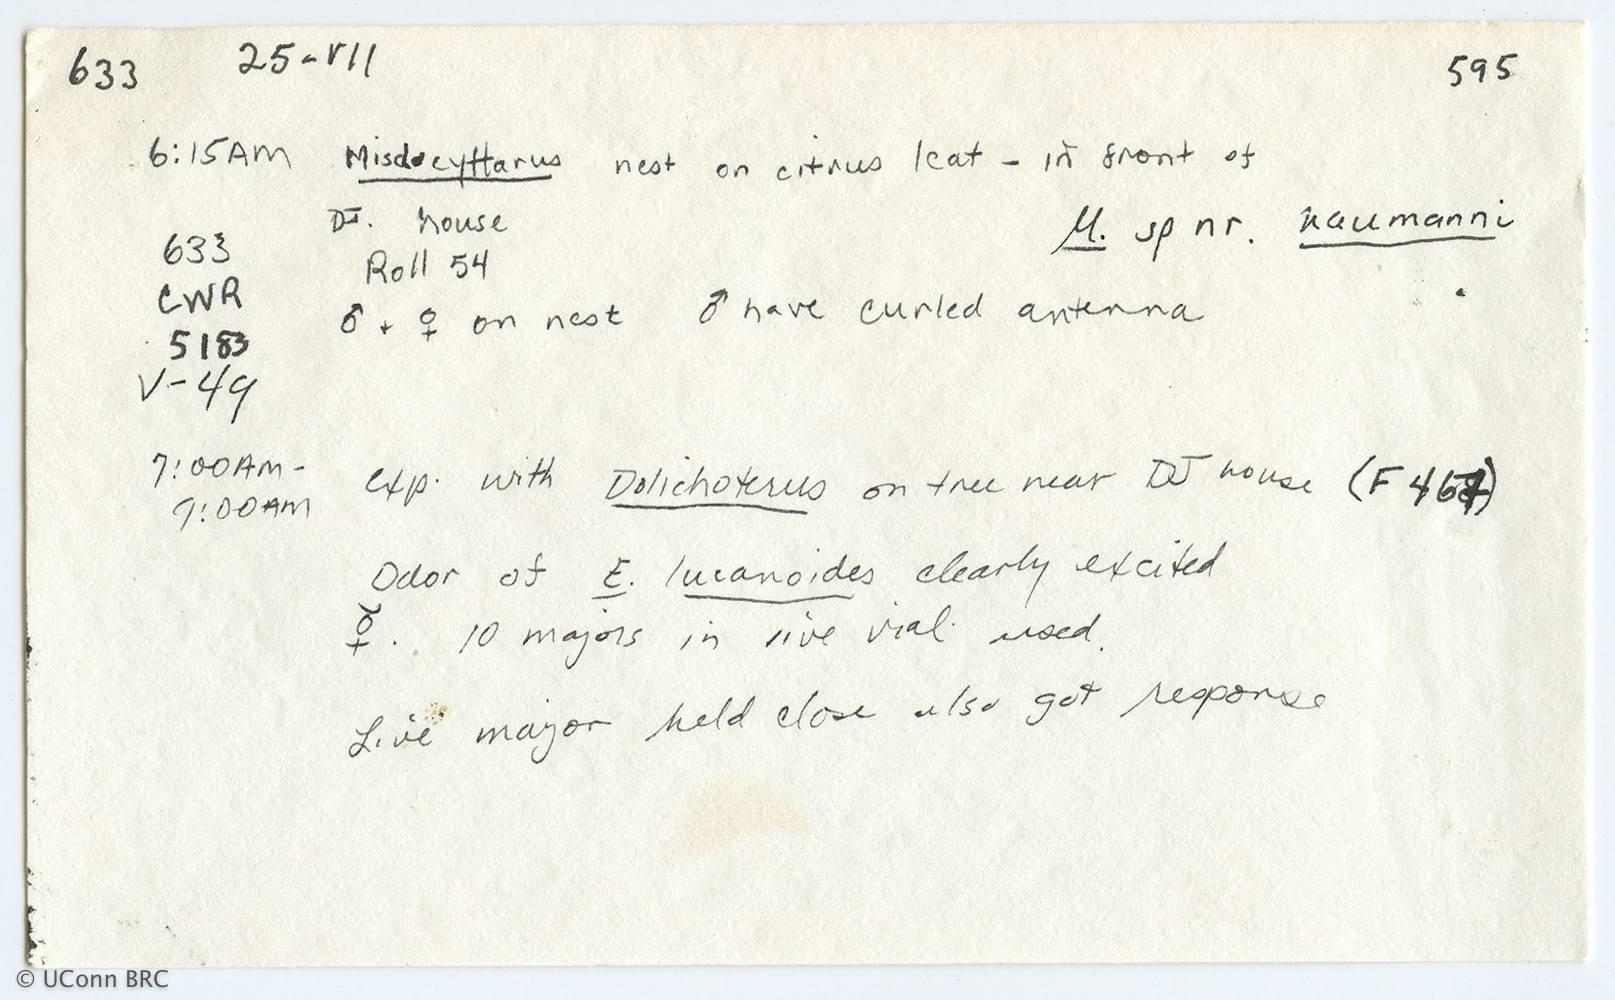 633 25-VII 595
6:15AM Misdocyttarus nest on citrus leaf - in front of
DJ. house M. sp nr. naumanni
633 Roll 54
CWR ♂ + ♀ on nest ♂ have curled antenna
5183
V-49
7:00AM- exp. with Dolichoterus on tree near DJ house (F 467)
9:00AM
Odor of E. lucanoides clearly excited
☿. 10 majors in live vial used.
Live major held close also got response
© UConn BRC